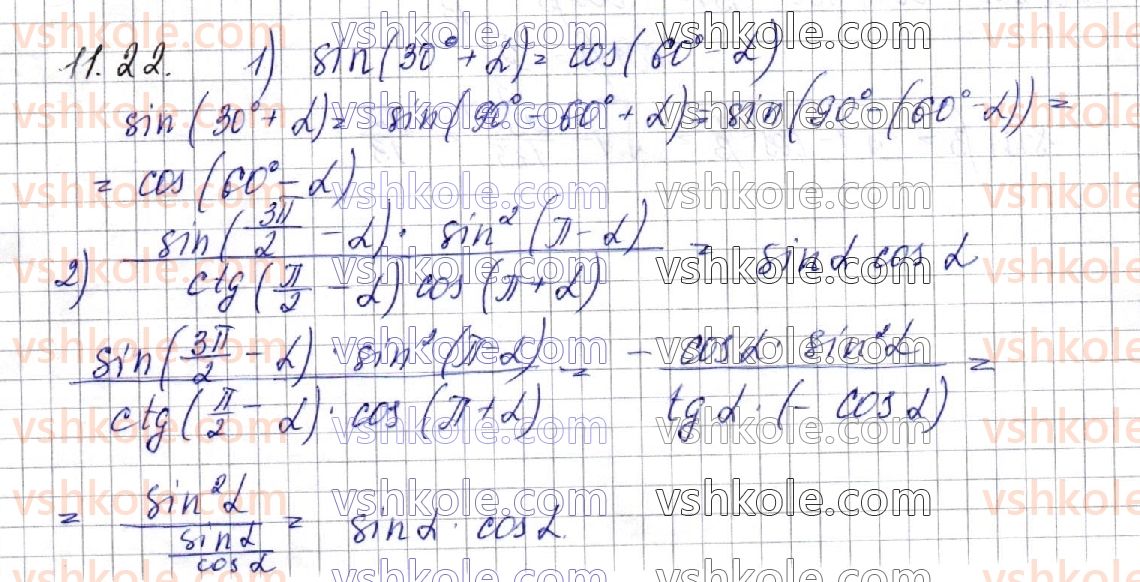 11.22. 1) sin(30° + α) = cos(60° - α)
sin(30° + α) = sin(90° - 60° + α) = sin(90° - (60° - α)) =
= cos(60° - α)
2) sin(3π/2 - α) · sin²(π - α) / ctg(π/2 - α) cos(π + α) = sin α cos α
sin(3π/2 - α) · sin²(π - α) / ctg(π/2 - α) · cos(π + α) = - cos α · sin²α / tg α · (- cos α) =
= sin²α / sin α / cos α = sin α · cos α.
vshkole.com